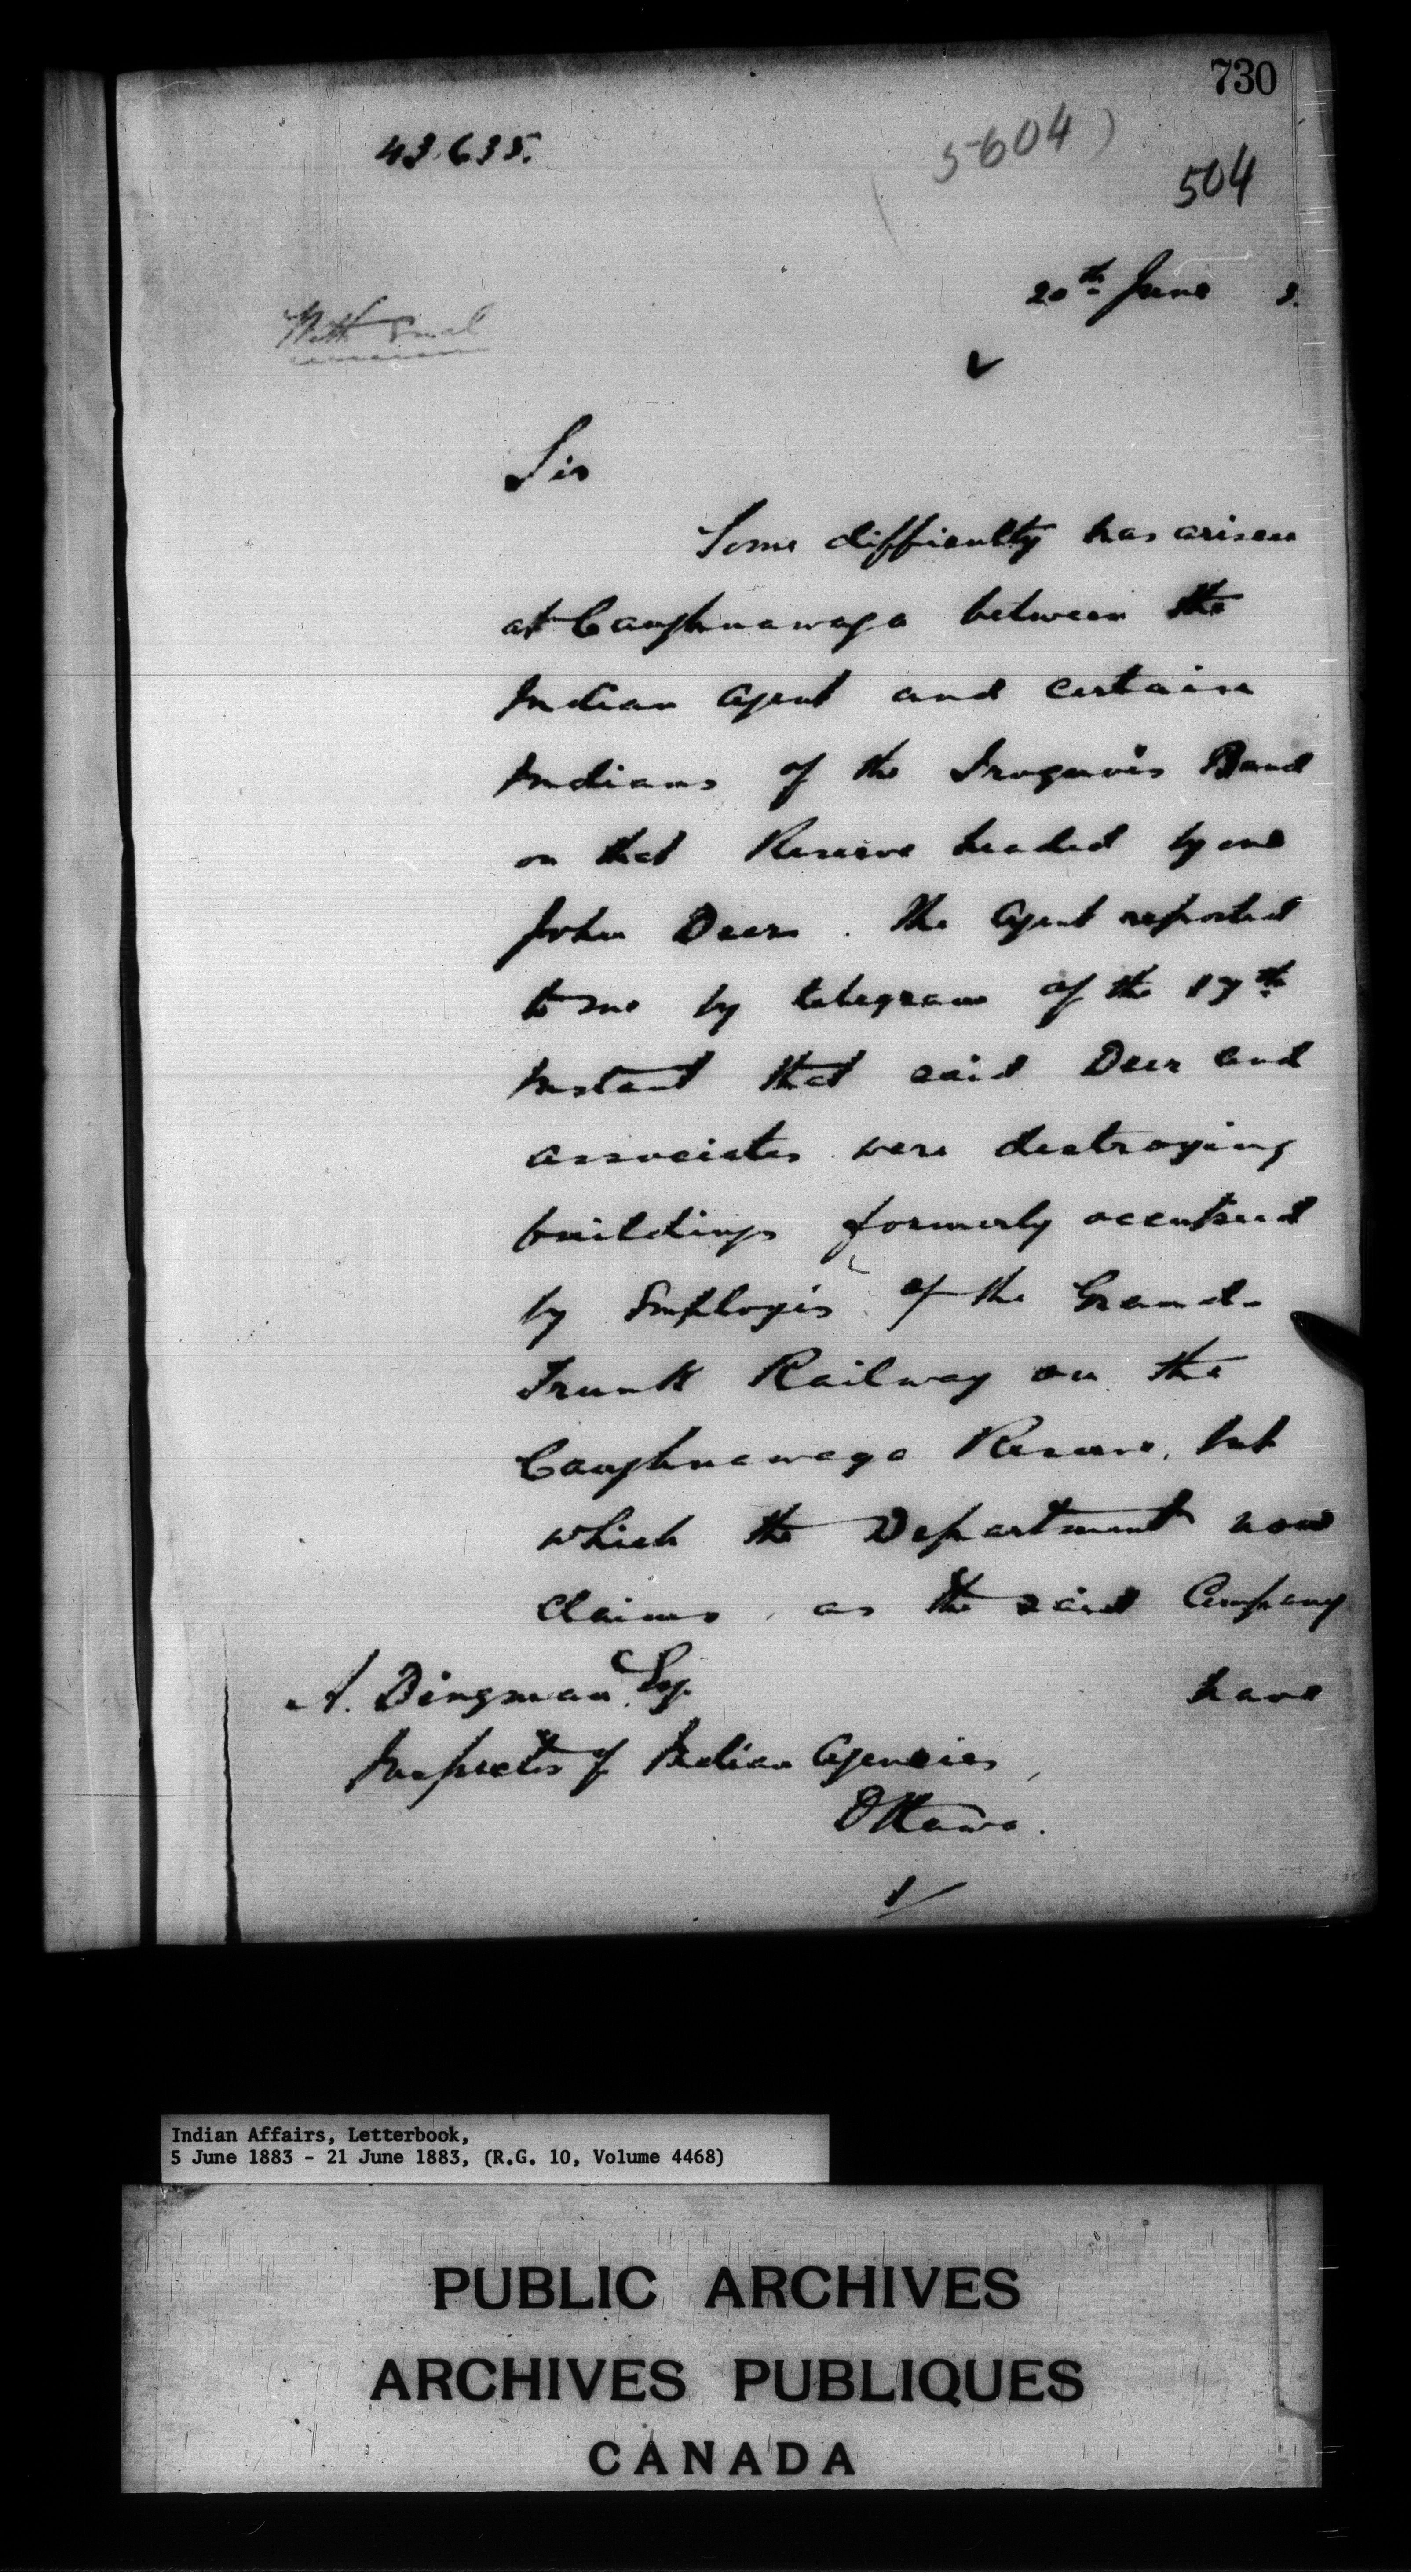 730
43.635.
5604)
504
20th June 3.
Sir
Some difficulty has arisen
at Caughnawaga between the
Indian Agent and certain
Indians of the Iroquois Band
on that Reserve headed by one
John Deer. The Agent reported
to me by telegram of the 17th
Instant that said Deer and
associates were destroying
buildings formerly occupied
by Employés of the Grand
Trunk Railway on the
Caughnawaga Reserve, but
which the Department now
claims, as the said Company
A. Dingman Esq. have
Inspector of Indian Agencies,
Ottawa.
Indian Affairs, Letterbook,
5 June 1883 - 21 June 1883, (R.G. 10, Volume 4468)
PUBLIC ARCHIVES
ARCHIVES PUBLIQUES
CANADA